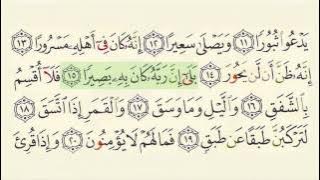 يَدْعُوا۟ ثُبُورًا ﴿١١﴾ وَيَصْلَىٰ سَعِيرًا ﴿١٢﴾ إِنَّهُۥ كَانَ فِىٓ أَهْلِهِۦ مَسْرُورًا ﴿١٣﴾
إِنَّهُۥ ظَنَّ أَن لَّن يَحُورَ ﴿١٤﴾ بَلَىٰٓ إِنَّ رَبَّهُۥ كَانَ بِهِۦ بَصِيرًا ﴿١٥﴾ فَلَآ أُقْسِمُ
بِٱلشَّفَقِ ﴿١٦﴾ وَٱلَّيْلِ وَمَا وَسَقَ ﴿١٧﴾ وَٱلْقَمَرِ إِذَا ٱتَّسَقَ ﴿١٨﴾
لَتَرْكَبُنَّ طَبَقًا عَن طَبَقٍ ﴿١٩﴾ فَمَا لَهُمْ لَا يُؤْمِنُونَ ﴿٢٠﴾ وَإِذَا قُرِئَ